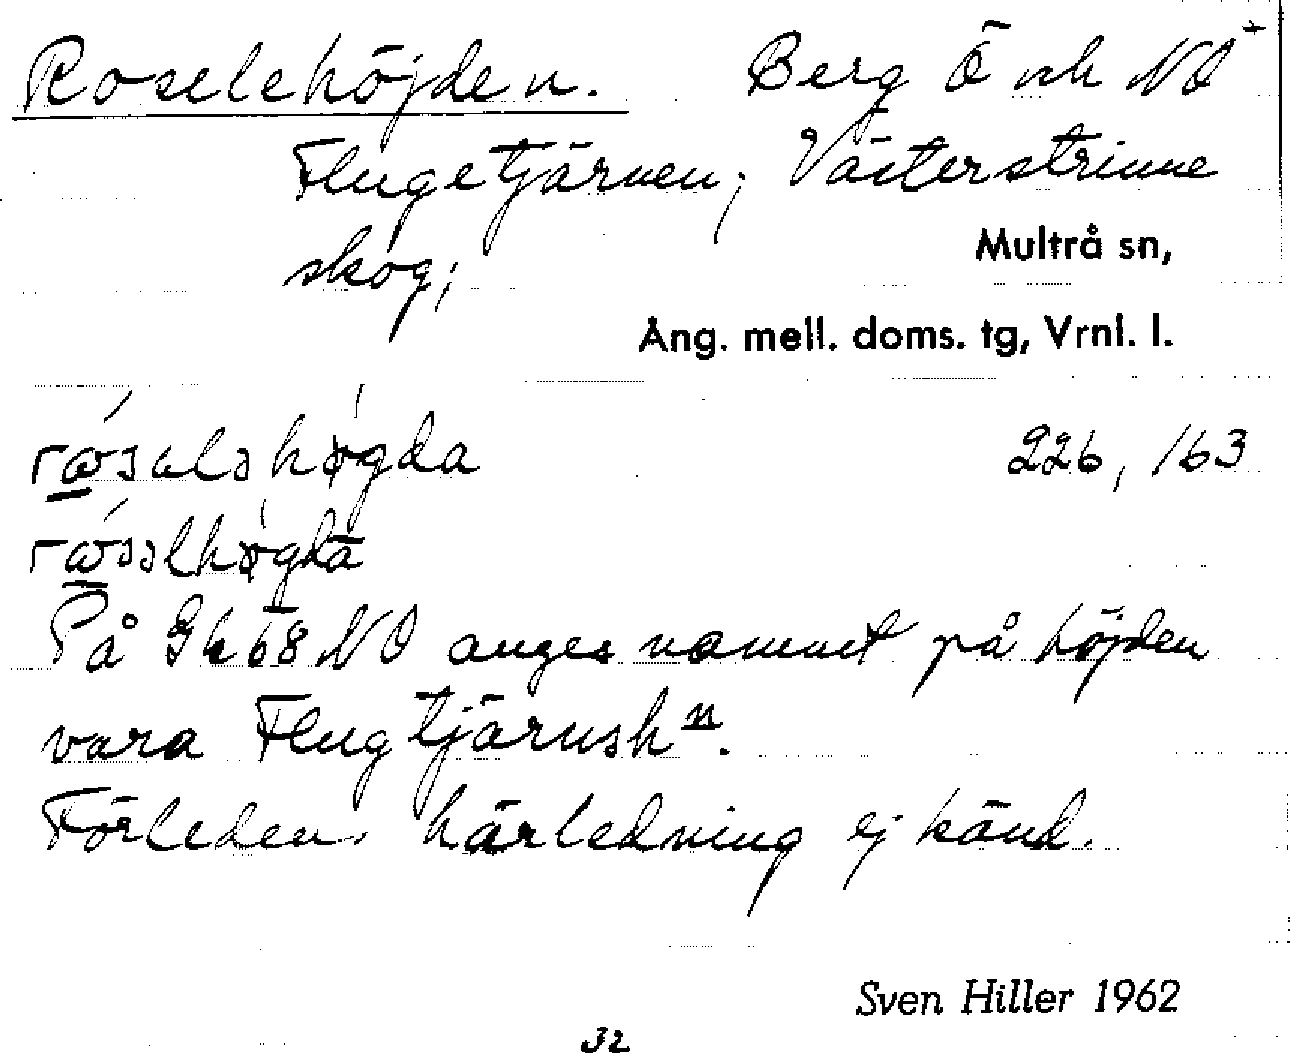 Roselehöjden. Berg Ö och NO +
Flugetjärnen; Västerstrinne
skog;
Multrå sn,
Ång. mell. doms. tg, Vrnl. l.
226, 163
På Gk 68 NO anges namnet på höjden
vara Flugtjärnshn.
Förledens härledning ej känd.
Sven Hiller 1962
32